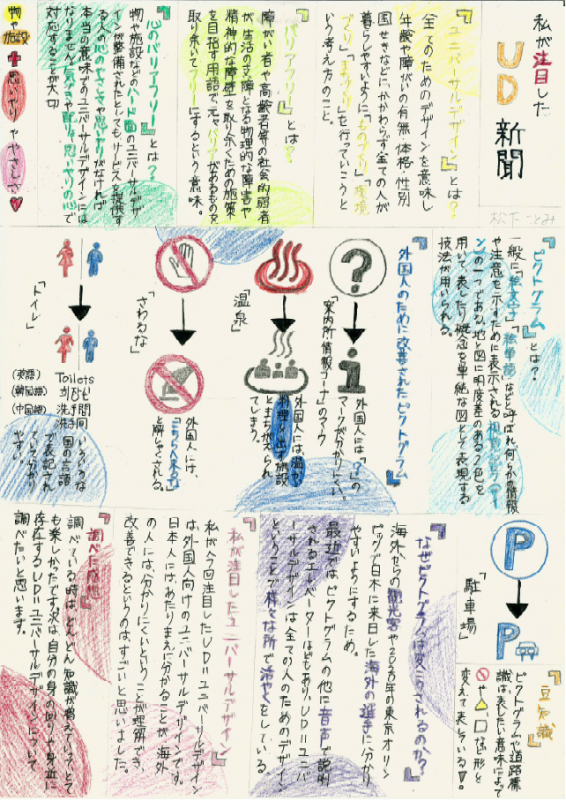 私が注目した
UD
新聞
松下ことみ
『ユニバーサルデザイン』とは?
全てのためのデザインを意味し
年齢や障がいの有無、体格・性別
国せきなどにかかわらず全ての人が
暮らしやすいように「ものづくり」「環境
づくり」「まちづくり」を行っていこうと
いう考え方のこと。
『バリアフリー』とは?
障がい者や高齢者等の社会的弱者
が生活の支障となる物理的な障害や
精神的な障壁を取り除くための施策
を目指す用語で、元々バリアがあるものを
取り除いてフリーにするという意味。
『心のバリアフリー』とは?
物や施設などのハード面のユニバーサルデザ
インが整備されたとしても、サービスを提供す
る人の心のやさしさや思いやりがなければ
本当の意味でのユニバーサルデザインには
なりません。気づきや配りや思いやりの心で
対応することが大切
物や施設+思いやり、ややさしさ♥
『ピクトグラム』とは?
一般に「絵文字」「絵単語」などと呼ばれ何らかの情報
や注意を示すために表示される視覚記号(サイ
ン)の一つである。地と図に明度差のある2色を
用いて、表したい概念を単純な図として表現する
技法が用いられる。
『外国人のために改善されたピクトグラム』
?
i
「案内所・情報コーナー」のマーク
外国人には「?」の
マークが分かりにくい。
「温泉」
外国人には、温かい
料理を出す施設
とまちがえられ
てしまう。
「さわるな」
外国人には、
「こっちへ来るな」
と解しゃくされる。
「トイレ」
(英語) Toilets
(韓国語)
(中国語) 洗手间
いろいろな
国の言語
で表記され
ていて分かり
やすい。
P
P
「駐車場」
『豆知識』
ピクトグラムや道路標
識は表したい意味によって
や△や□など形を
変えて表している♥。
『なぜピクトグラムは変こうされるのか?』
海外からの観光客や2020年の東京オリン
ピックで日本に来日した海外の選手に分かり
やすいようにするため。
最近では、ピクトグラムの他に音声で説明
されるエレベーターなどもあり、UD=ユニバ
ーサルデザインは全ての人のためのデザイン
ということで様々な所で活やくをしている。
『私が注目したユニバーサルデザイン』
私が今回注目したUD=ユニバーサルデザイン
は、外国人向けのユニバーサルデザインです。
日本人にはあたりまえに分かることが海外
の人には、分かりにくいということが理解でき、
改善できるというのは、すごいと思いました。
『調べた感想』
調べている時は、どんどん知識が増えていって、とて
も楽しかったです。次は、自分の身の回りや身近に
存在するUD=ユニバーサルデザインについて
調べたいと思います。